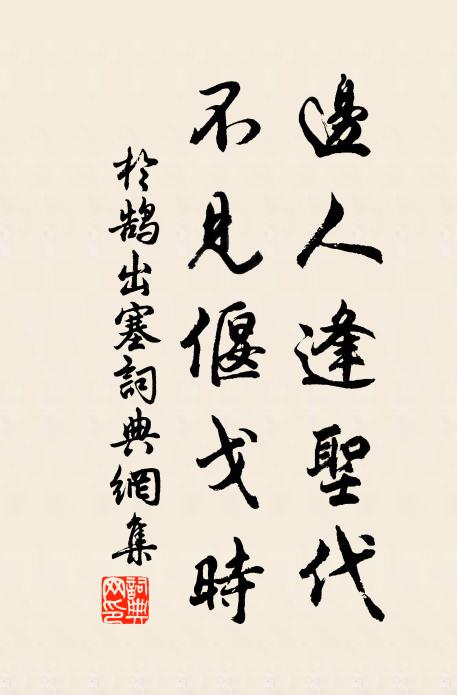 邊人逢聖代
不見偃戈時
於鵠出塞詞典網集
詞典網印